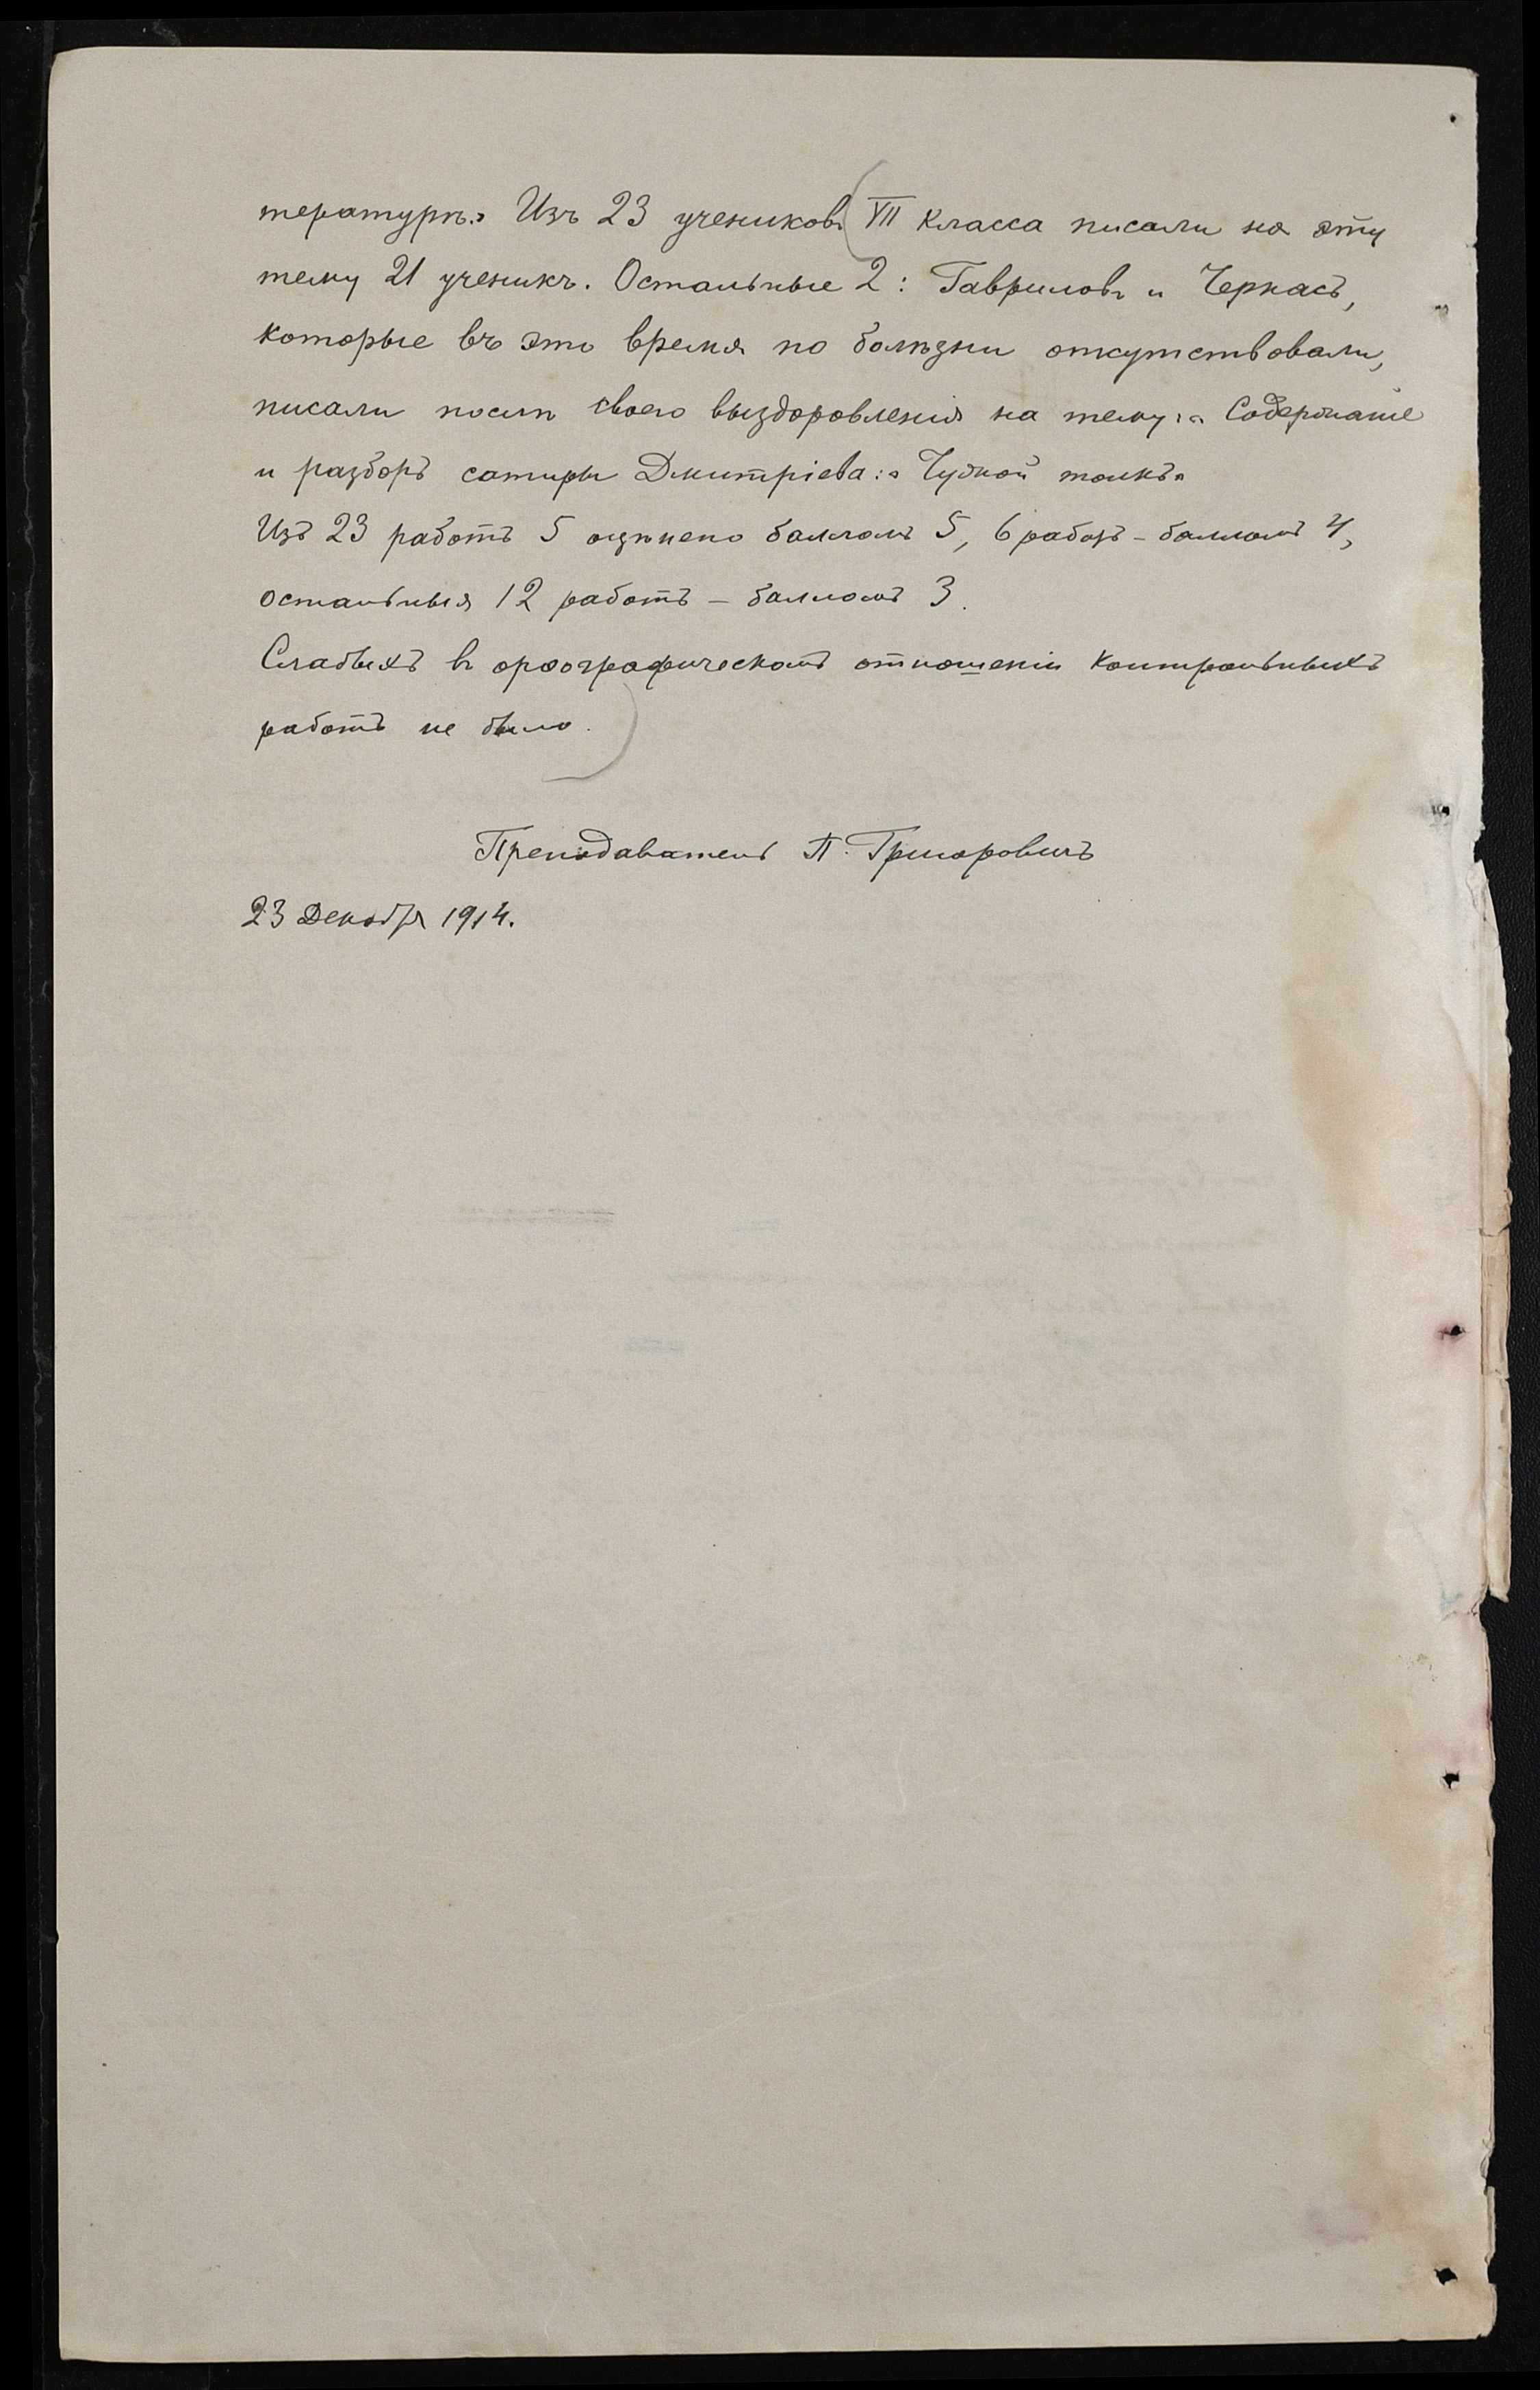 тературѣ.» Изъ 23 учениковъ VII класса писали на эту
тему 21 ученикъ. Остальные 2: Гавриловъ и Черкасъ,
которые въ это время по болѣзни отсутствовали,
писали послѣ своего выздоровленія на тему: „Содержаніе
и разборъ сатиры Дмитріева: „Чужой толкъ"
Изъ 23 работъ 5 оцѣнено балломъ 5, 6 работъ – балломъ 4,
остальныя 12 работъ – балломъ 3.
Слабыхъ въ орѳографическомъ отношеніи контрольныхъ
работъ не было.
Преподаватель П. Григоровичъ
23 Декабря 1914.